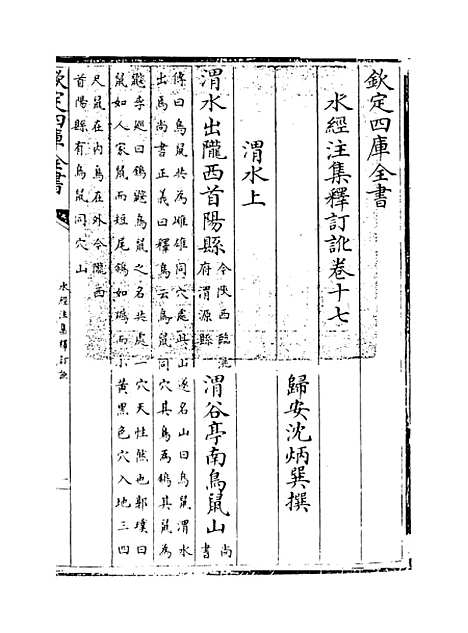 欽定四庫全書
水經注集釋訂訛卷十七
歸安沈炳巽撰
渭水上
渭水出隴西首陽縣今陝西臨洮府渭源縣渭谷亭南鳥鼠山尚書
傳曰鳥鼠共為雌雄同穴處此山遂名山曰鳥鼠渭水
出焉尚書正義曰釋鳥云鳥鼠同穴其鳥為鵌其鼠為
鼵李巡曰鵌鼵鳥鼠之名共處一穴天性然也郭璞曰
鼵如人家鼠而短尾鵌如鵽而小黃黑色穴入地三四
尺鼠在內鳥在外今隴西
首陽縣有鳥鼠同穴山
欽定四庫全書
水經注集釋訂訛
一